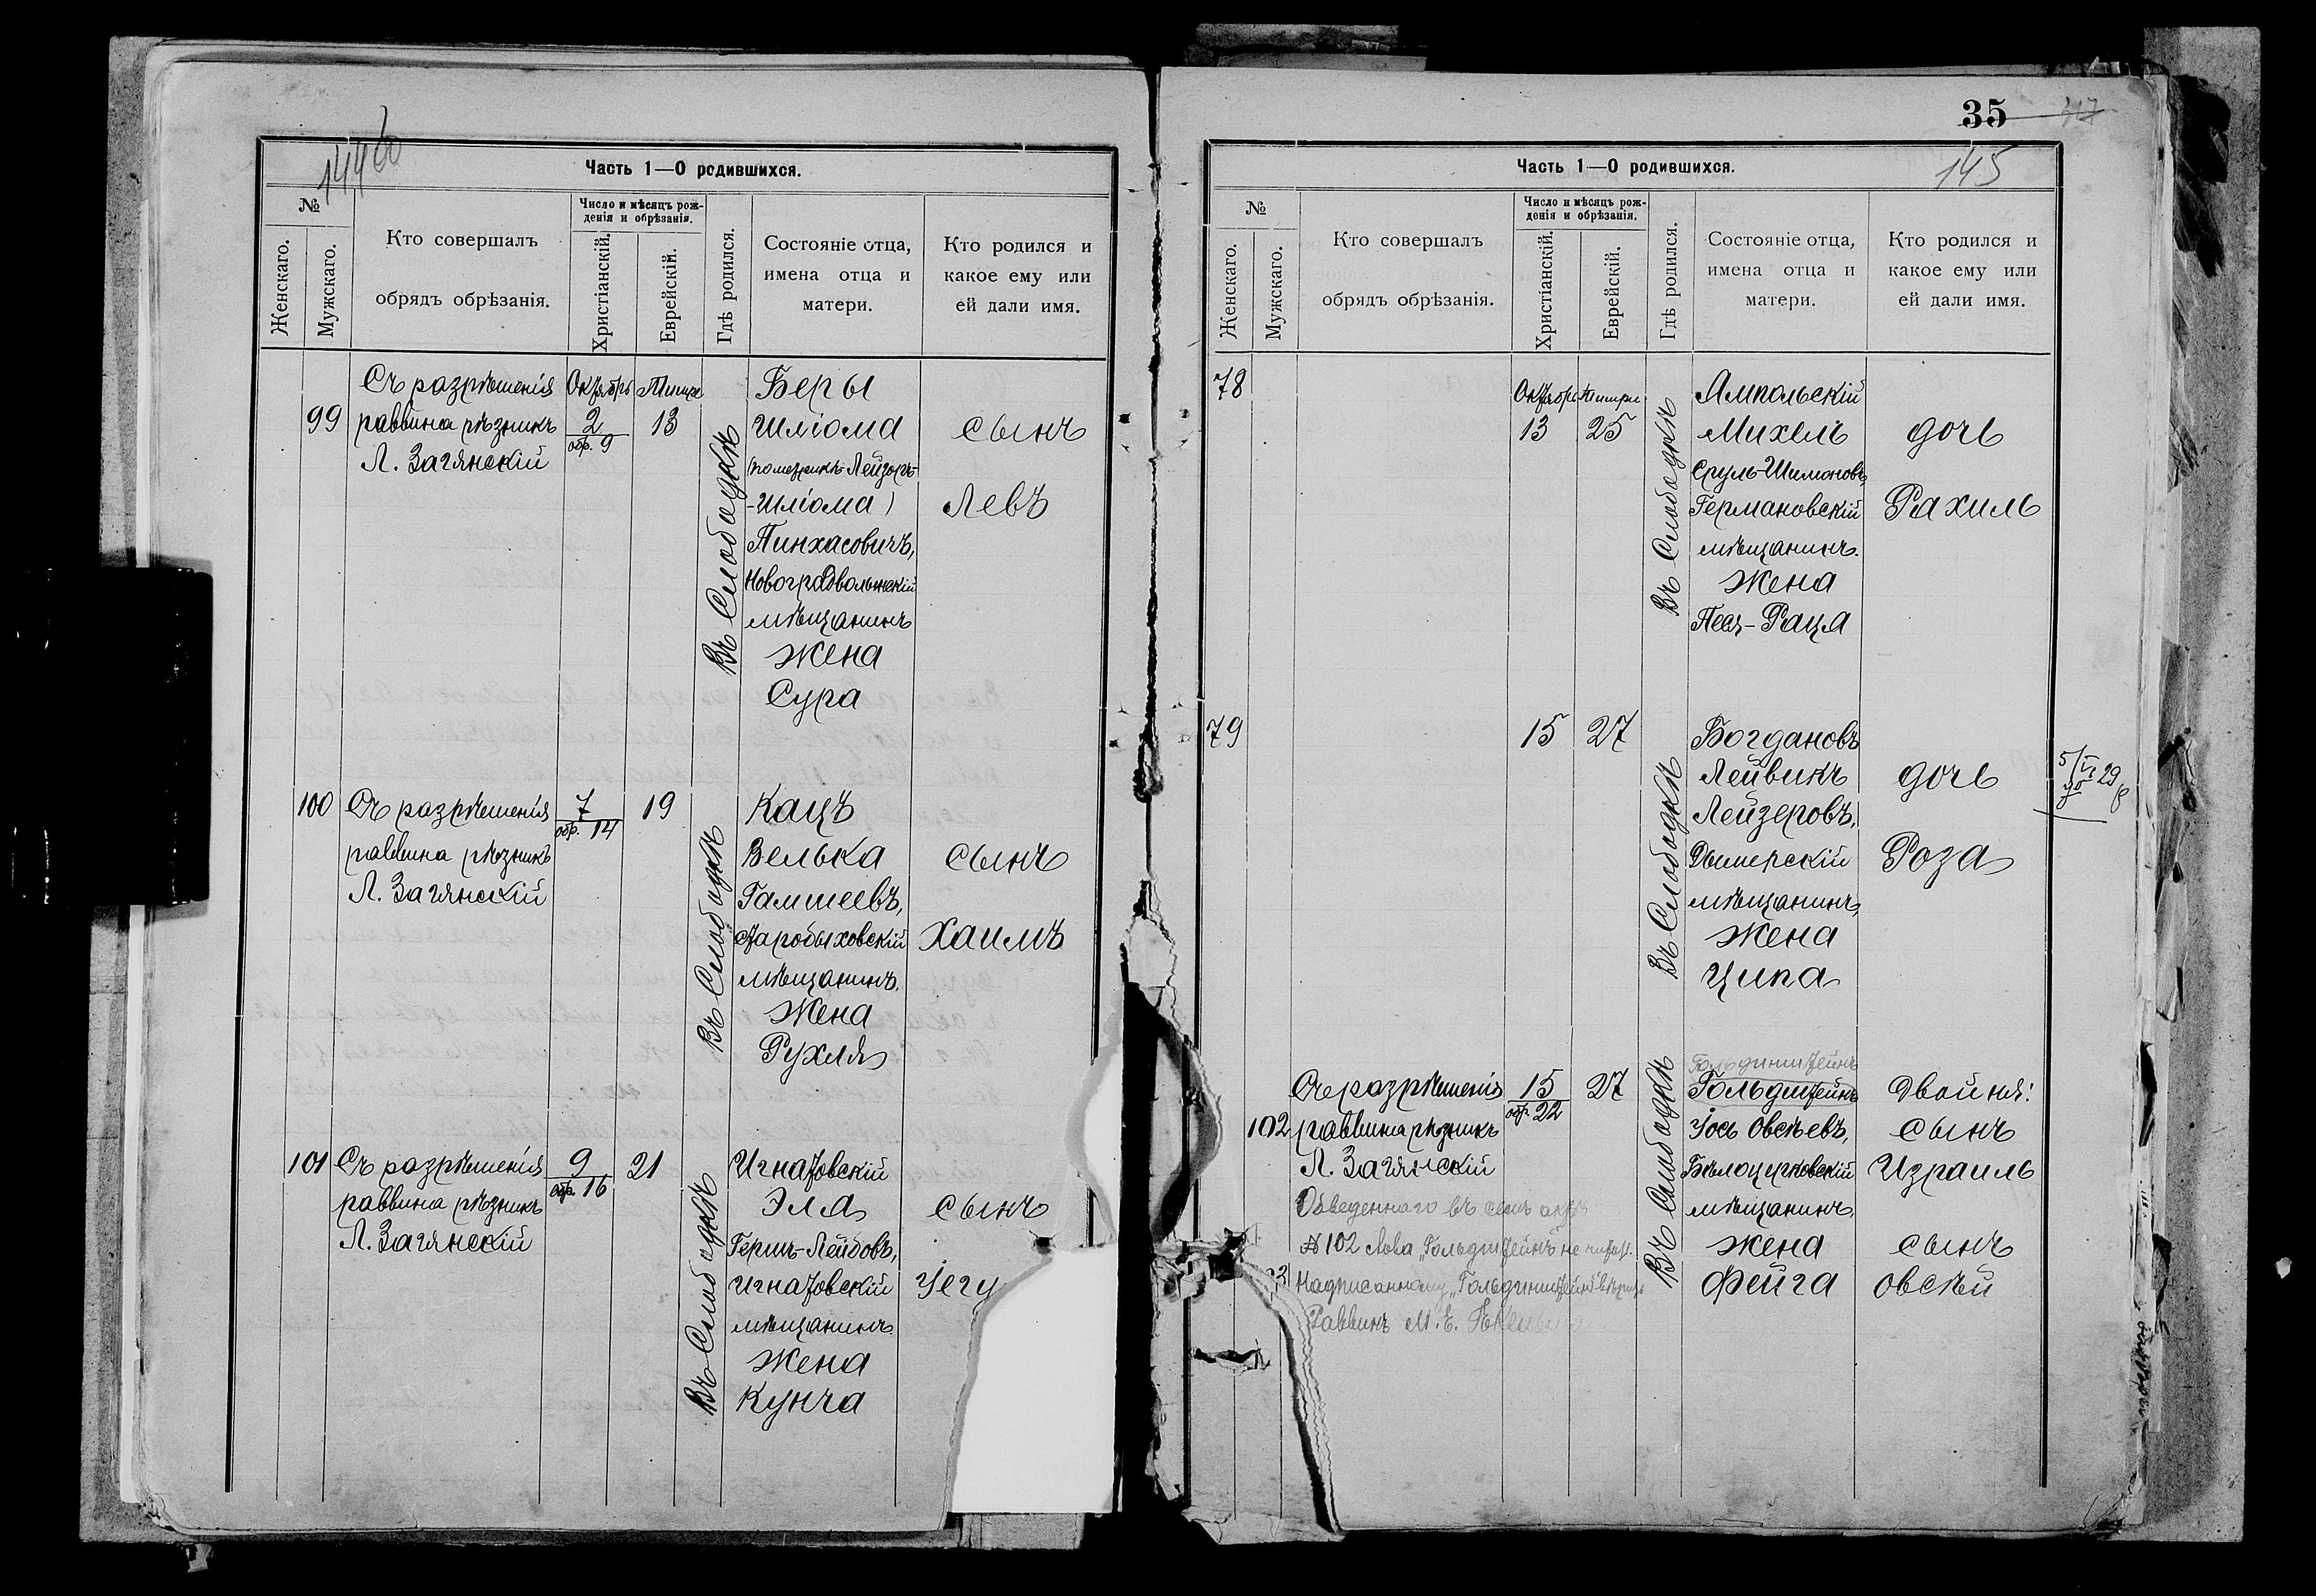 144
Часть 1—О родившихся.
№
Женскаго.
Мужскаго.
Кто совершалъ
обрядъ обрѣзанія.
Число и мѣсяцъ рож-
денія и обрѣзанія.
Христіанскій.
Еврейскій.
Гдѣ родился.
Состояніе отца,
имена отца и
матери.
Кто родился и
какое ему или
ей дали имя.
99
Съ разрѣшенія
раввина рѣзникъ
Л. Загянскій
Октябрь
2
обр. 9
Тишри
13
Въ Слободкѣ
Беры
Шліома
Лейзоръ-
-Шліома)
Пинхасовичъ,
Новоградволынскій
мѣщанинъ
жена
Сура
сынъ
Левъ
100
Съ разрѣшенія
раввина рѣзникъ
Л. Загянскій
7
обр. 14
19
Въ Слободкѣ
Кацъ
Велька
Гамшеевъ,
Старобыховскій
мѣщанинъ,
жена
Рухля
сынъ
Хаимъ
101
Съ разрѣшенія
раввина рѣзникъ
Л. Загянскій
9
обр. 16
21
Въ Слободкѣ
Игнатовскій
Эла
Герш-Лейбовъ,
Игнатовскій
мѣщанинъ
жена
Кунча
сынъ
Іегу
35
145
Часть 1—О родившихся.
№
Женскаго.
Мужскаго.
Кто совершалъ
обрядъ обрѣзанія.
Число и мѣсяцъ рож-
денія и обрѣзанія.
Христіанскій.
Еврейскій.
Гдѣ родился.
Состояніе отца,
имена отца и
матери.
Кто родился и
какое ему или
ей дали имя.
78
Октябрь
13
Тишри
25
Въ Слободкѣ
Ямпольскій
Михель
Сруль-Шимоновъ,
Германовскій
мѣщанинъ.
жена
Песя-Раца
дочь
Рахиль
79
15
27
Въ Слободкѣ
Богдановъ
Лейвикъ
Лейзеровъ,
Дымерскій
мѣщанинъ,
жена
Ципа
дочь
Роза
5/VI 29
102
Съ разрѣшенія
раввина рѣзникъ
Л. Загянскій
15
обр. 22
27
Въ Слободкѣ
Гольдинштейнъ
Гольдштейнъ
Іось Овсѣевъ,
Бѣлоцерковскій
мѣщанинъ,
жена
Фейга
двойня:
сынъ
Израиль
сынъ
Овсѣй
Обведеннаго въ семъ
№ 102 слова „Гольдштейнъ" не читать.
3
Надписанному „Гольдинштейнъ" вѣрить
Раввинъ М. Е.